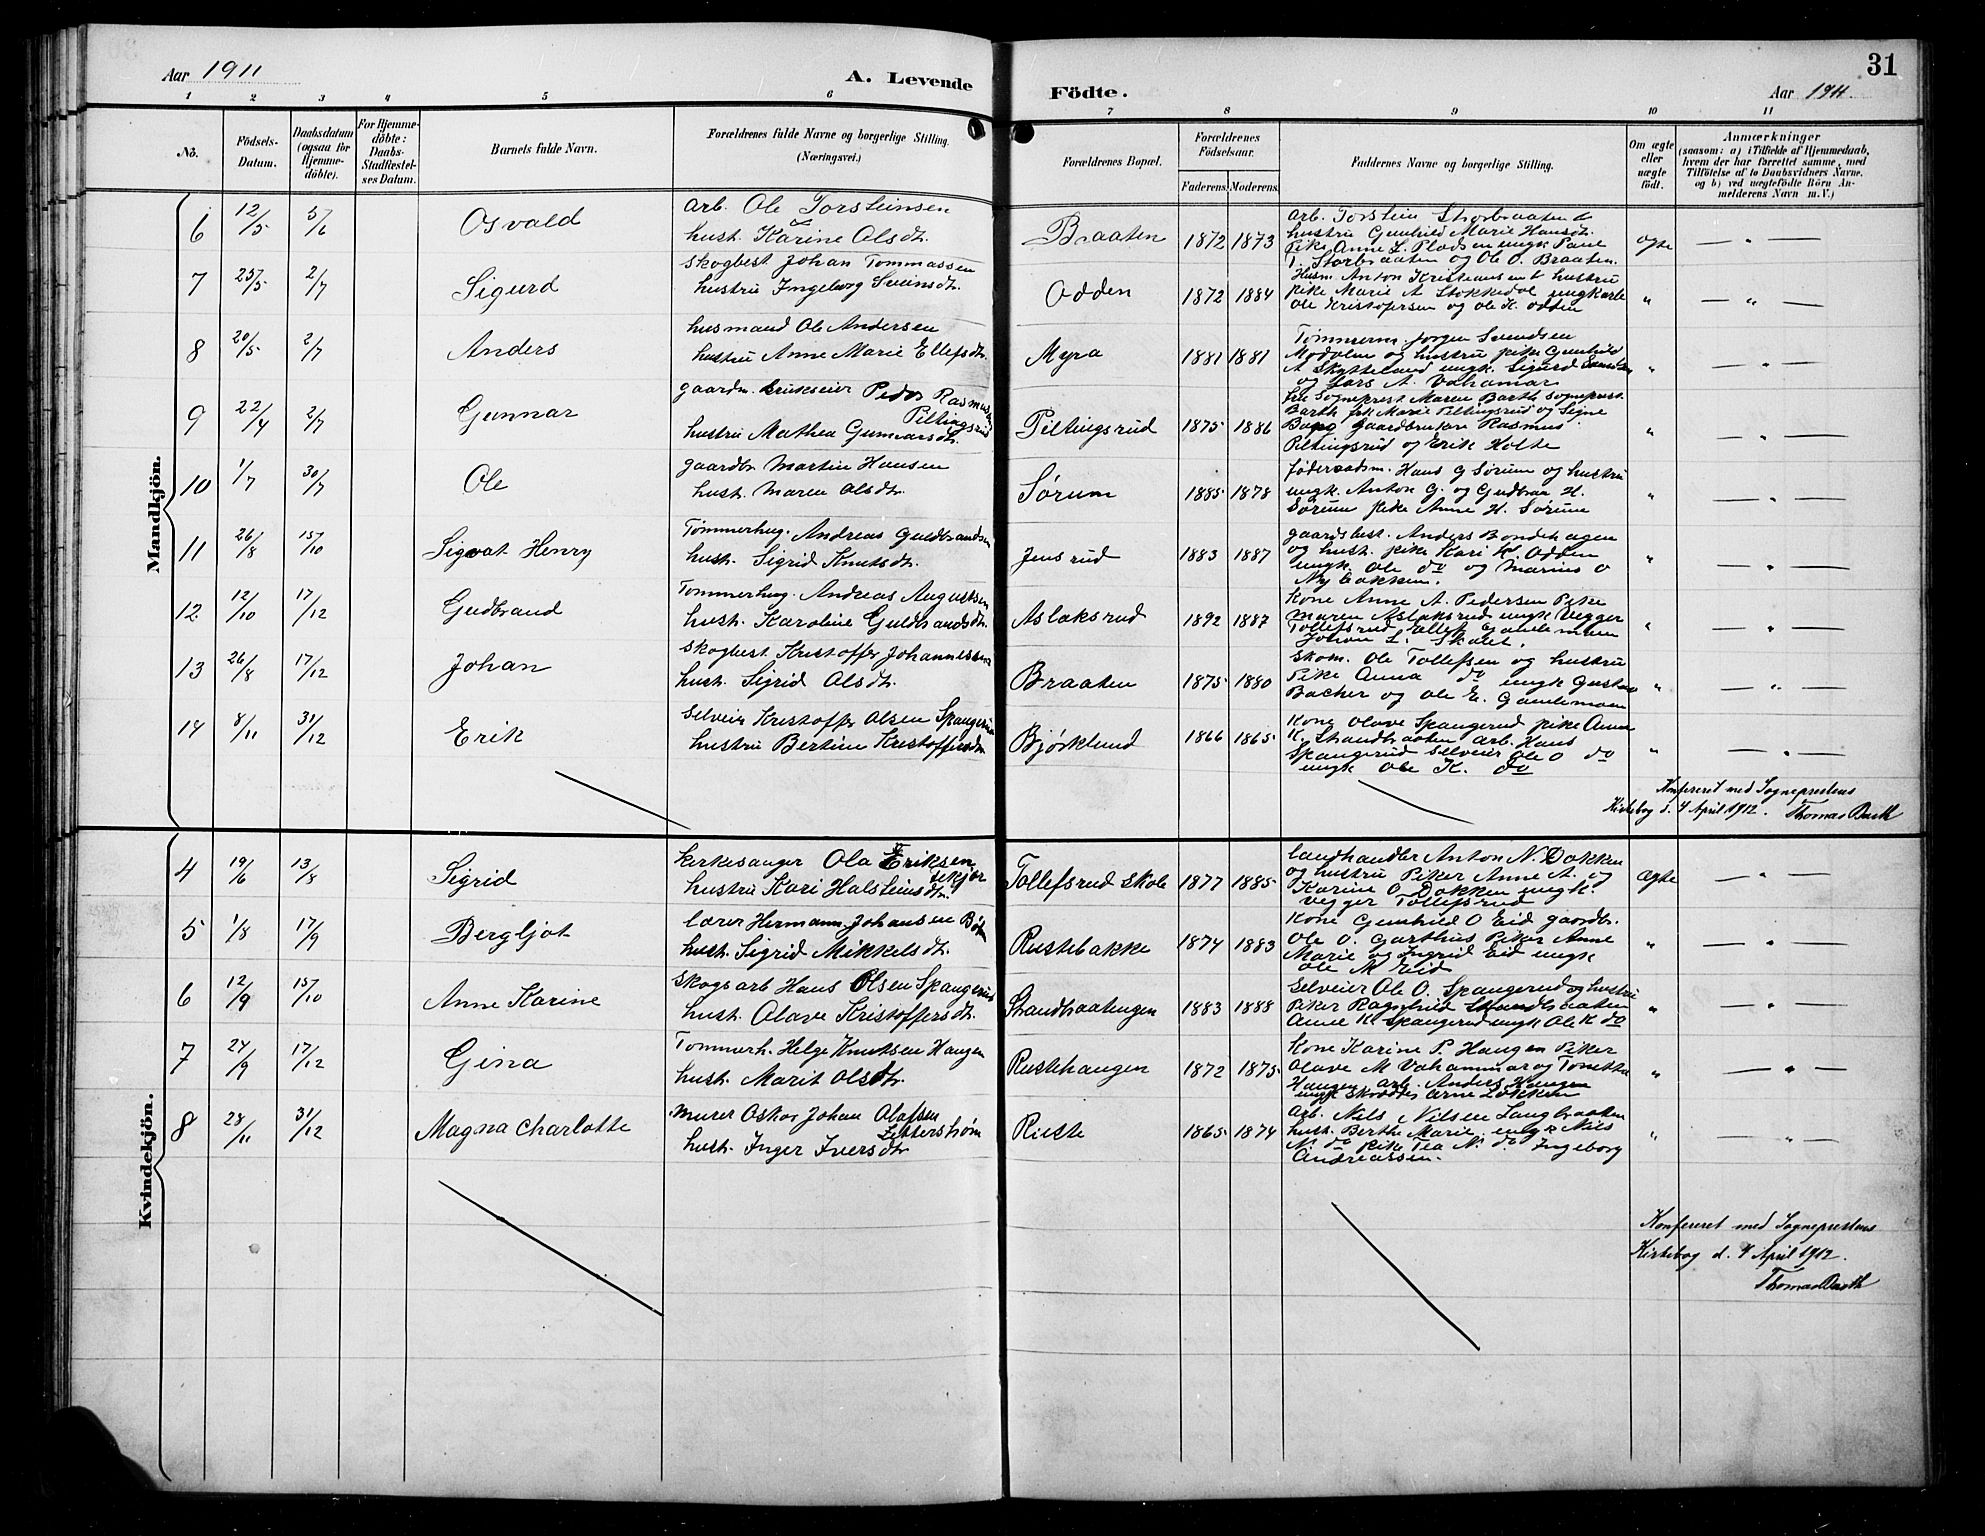 Aar 1911
A. Levende
Födte.
31
Aar 1911.
1 2 3 4 5 6 7 8 9 10 11
No.
Födsels-Datum.
Daabsdatum (ogsaa för Hjemmedöbte).
For Hjemmedöbte: Daabs-Stadfæstelses Datum.
Barnets fulde Navn.
Forældrenes fulde Navne og borgerlige Stilling.
(Næringsvei.)
Forældrenes Bopæl.
Forældrenes Födselsaar.
Faderens. Moderens.
Faddernes Navne og borgerlige Stilling.
Om ægte eller uægte födt.
Anmærkninger
(saasom: a) i Tilfælde af Hjemmedaab, hvem der har forrettet samme, med Tilföielse af to Daabsvidners Navne, og b) ved uægtefödte Börn Anmelderens Navn m.V.)
Mandkjön.
6 12/5 5/6 Osvald
arb. Ole Torsteinsen
hust. Karine Olsdt.
Braaten 1872 1873
arb. Torstein Storbraaten &
hustru Gunhild Marie Hansdt.
Pike Anne L. Pladsen ungk Paul
T. Storbraaten og Ole O. Braaten.
ægte — " —
7 25/5 2/7 Sigurd
Skogbest Johan Tommassen
hustru Ingeborg Svensdt.
Odden 1872 1884
Husm. Anton Kristiansen & hustru
pike Marie A Stokkedal ungkarle
Ole Kristofersen og Ole K. Odden
" — " —
8 20/5 2/7 Anders
husmand Ole Andersen
hustru Anne Marie Ellefsdt.
Myra 1881 1881
Tømmerm Jørgen Svendsen
Modalen og hustru pike Gunhild
A Skytteland ungk. Sigurd
og Lars A. Vahamar
" — " —
9 22/4 2/7 Gunnar
gaardm. brukseier Peder Rasmussen
Piltingsrud
hustru Mathea Gunnarsdt.
Piltingsrud 1875 1886
fru Sogneprest Maren Barth Sogneprest
Barth frk Marie Piltingsrud og Signe
gaardbruker Rasmus
Piltingsrud og Erik Holte
" — " —
10 1/7 30/7 Ole
gaardbr Martin Hansen
hust. Maren Olsdt.
Sørum 1885 1878
føderaadsm. Hans G Sørum og hustru
ungk. Anton G. og Gudbran H.
Sørum pike Anne H. Sørum
" — " —
11 26/8 15/10 Sigvat Henry
Tømmerhug. Andreas Guldbrandsen
hust. Sigrid Knutsdt.
Jensrud 1883 1887
gaardsbest. Anders Bondehagen
og hust. pike Kari K. Odden
ungk. Ole do og Marius O
Nybakken.
" — " —
12 12/10 17/12 Gudbrand
Tømmerhug. Andreas Augustsen
hust. Karoline Guldbrandsdt.
Aslaksrud 1892 1887
Kone Anne A. Pedersen Pike
Maren Aslaksrud ungk Vegger
Tollefsrud Ellef Gamlemoen
Johan L. Skalet.
" — " —
13 26/8 17/12 Johan
Skogbest Kristoffer Johannessen
hust. Sigrid Olsdt.
Braaten 1875 1880
Skom. Ole Tollefsen og hustru
Pike Anna do ungk Gustav
Bacher og Ole E. Gamlemoen
" — " —
14 8/11 31/12 Erik
Selveier Kristoffer Olsen Spangerud
hustru Bertine Kristoffersdt
Bjørklund 1866 1865
Kone Olave Spangerud pike Anne
K. Strandbraaten arb. Hans
Spangerud selveier Ole O do
ungk Ole K. do
" — " —
Konfereret med Sogneprestens
Kirkebog d. 4 April 1912. Thomas Barth
Kvindekjön.
4 19/6 13/8 Sigrid
Kirkesanger Ola Eriksen
hustru Kari Halsteinsdt.
Tollefsrud Skole 1877 1885
landhandler Anton N. Dokken
og hustru Piker Anne A. og
Karine O Dokken ungk.
Vegger Tollefsrud
ægte — " —
5 1/8 17/9 Bergljot
lærer Hermann Johansen
hust. Sigrid Mikkelsdt.
Rustebakke 1874 1883
Kone Gunhild O Eid gaardbr.
Ole O. Garthus Piker Anne
Marie og Ingrid Eid ungk
Ole M Eid
" — " —
6 12/9 15/10 Anne Karine
Skogsarb Hans Olsen Spangerud
hust. Olave Kristoffersdt.
Strandbraatengen 1883 1888
Selveier Ole O. Spangerud og hustru
Piker Ragnhild Strandbraaten
Anne K Spangerud ungk Ole K do
" — " —
7 24/9 17/12 Gina
Tømmerh. Helge Knutsen Haugen
hust. Marit Olsdt.
Rustehaugen 1872 1875
Kone Karine P. Haugen Piker
Olave M Vahammar og Tonetta
Haugen arb. Anders Haugen
ungk skrædder Arne Løkken
" — " —
8 28/11 31/12 Magna Charlotte
Murer Oskar Johan Olafsen
Zetterstrøm
hust. Inger Iversdt.
Ruste 1865 1874
Arb. Nils Nilsen Langbraaten
hust. Berthe Marie ungk Nils
N. do pike Tea N. do Ingeborg
Andreassen.
" — " —
Konfereret med Sogneprestens
Kirkebog d. 4 April 1912.
Thomas Barth